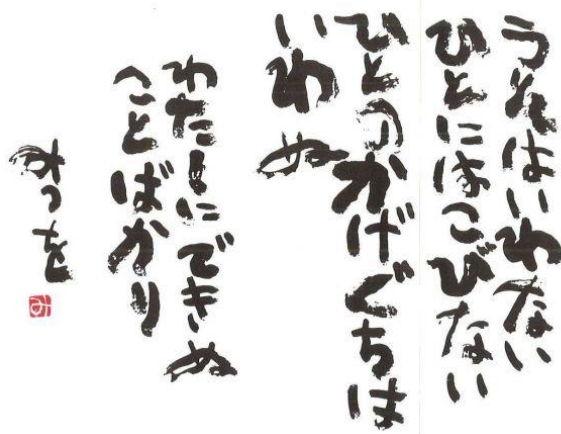 うそはいわない
ひとにはこびない
ひとのかげぐちは
いわぬ
わたしにできぬ
ことばかり
みつを
み